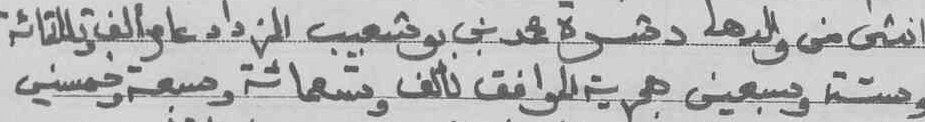 انثى من والدها دشرة محمد بن بوشعيب المزداد عام ألف وثلاثمائة
وستة وسبعين هجرية الموافق لألف وتسعمائة وسبعة وخمسين